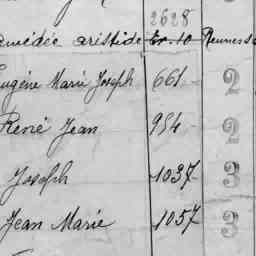 2628
Amédée Aristide Ex. 10 Rennes
Eugène Marie Joseph 661 2
René Jean 954 2
Joseph 1037 3
Jean Marie 1057 2